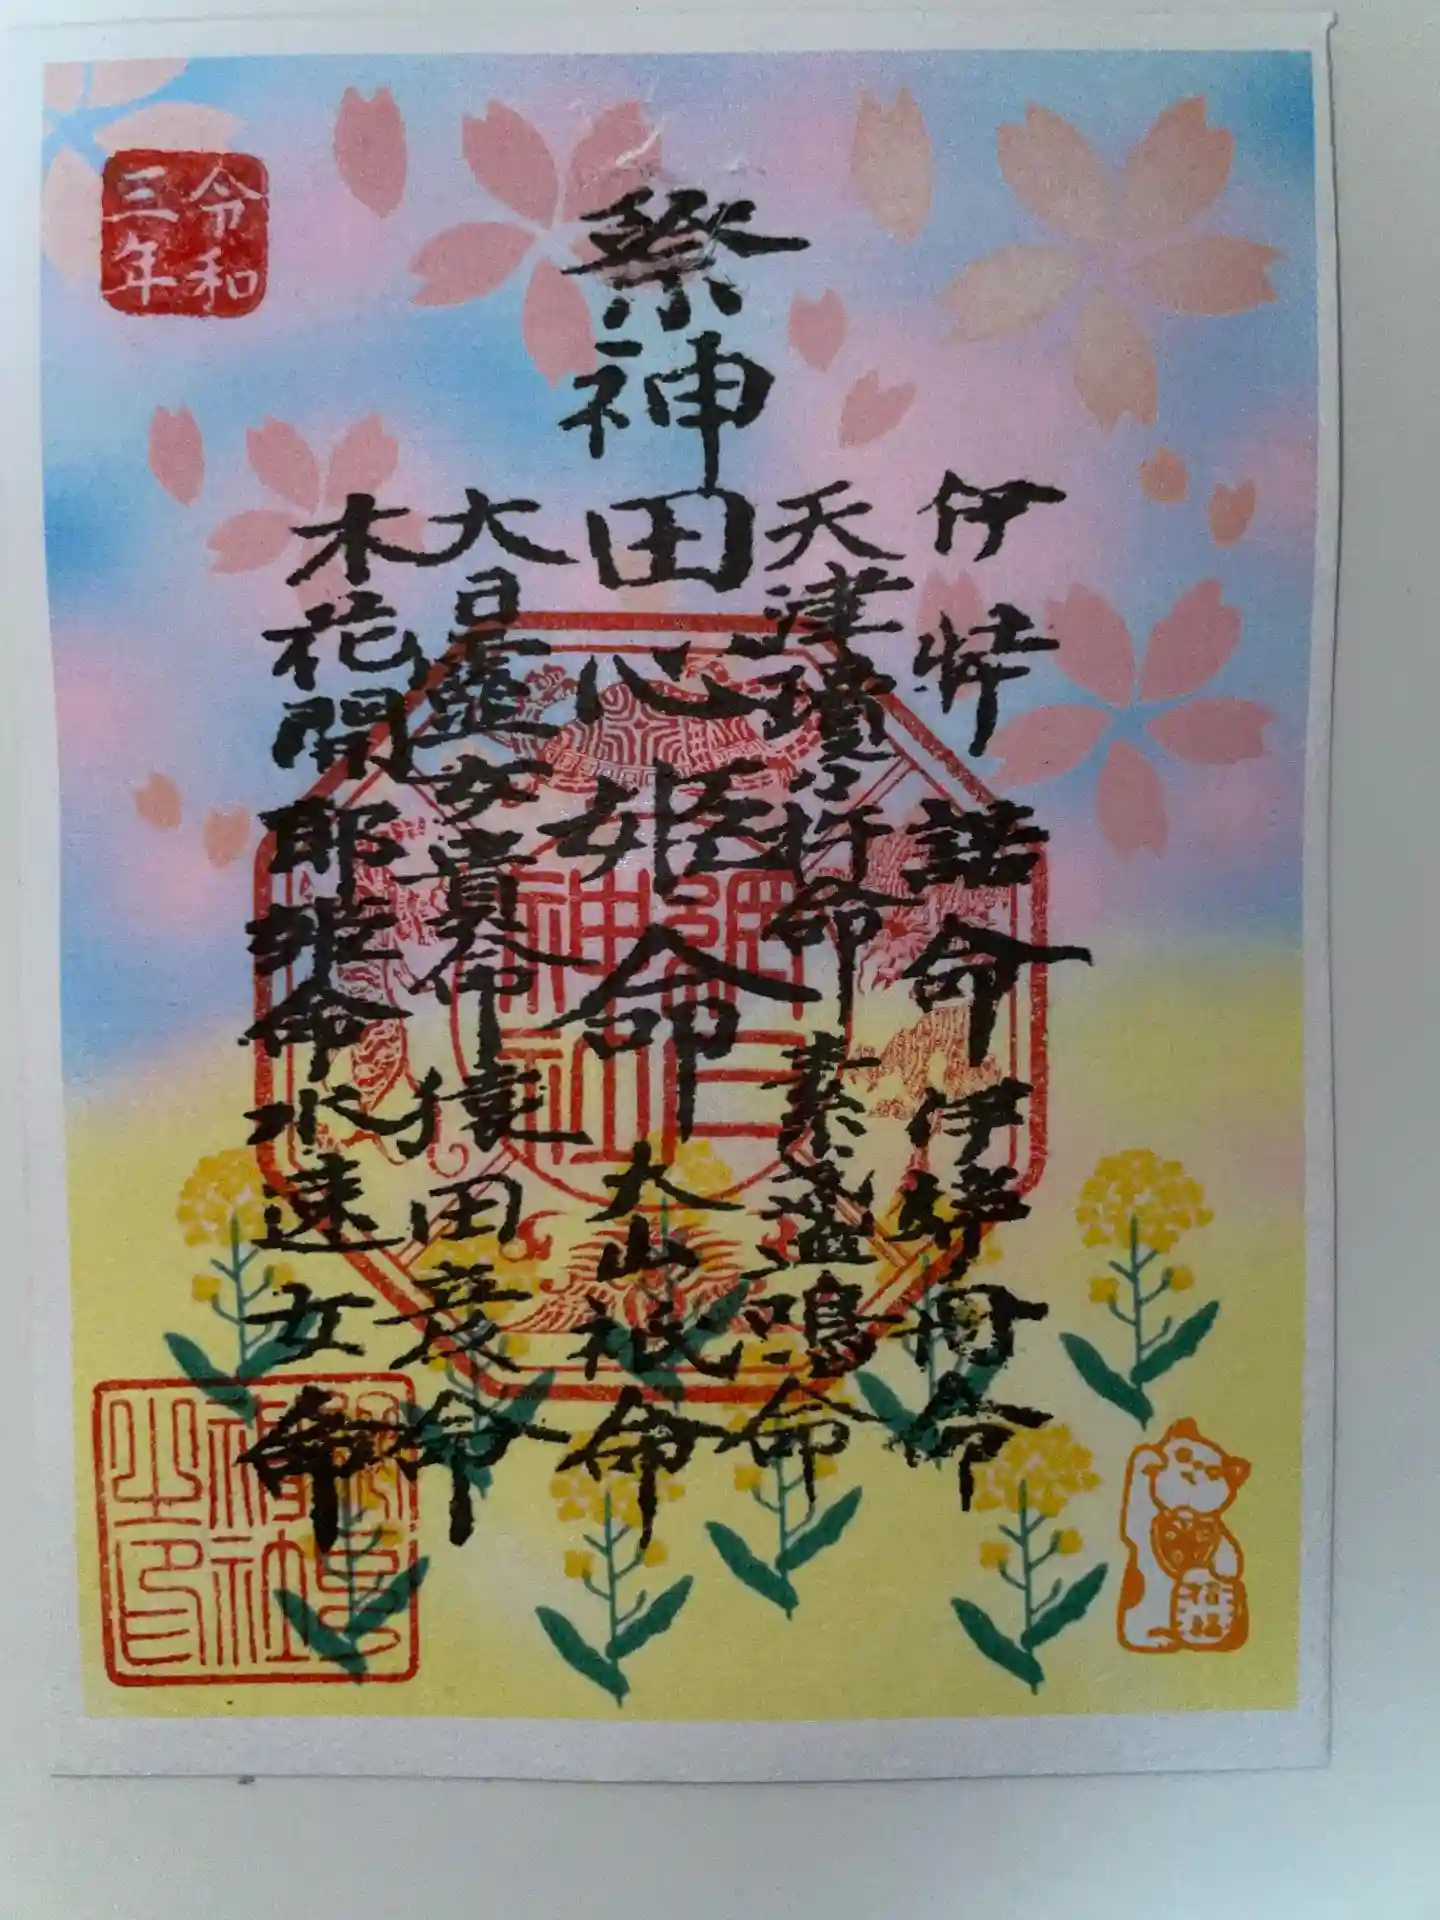 令和
三年
祭神
伊弉諾命 伊弉冊命
天津瓊々杵命 素盞鳴命
田心姫命 大山祇命
大日孁女貴命 猿田彦命
木花開耶姫命 水速女命
神社
神社
之印
福